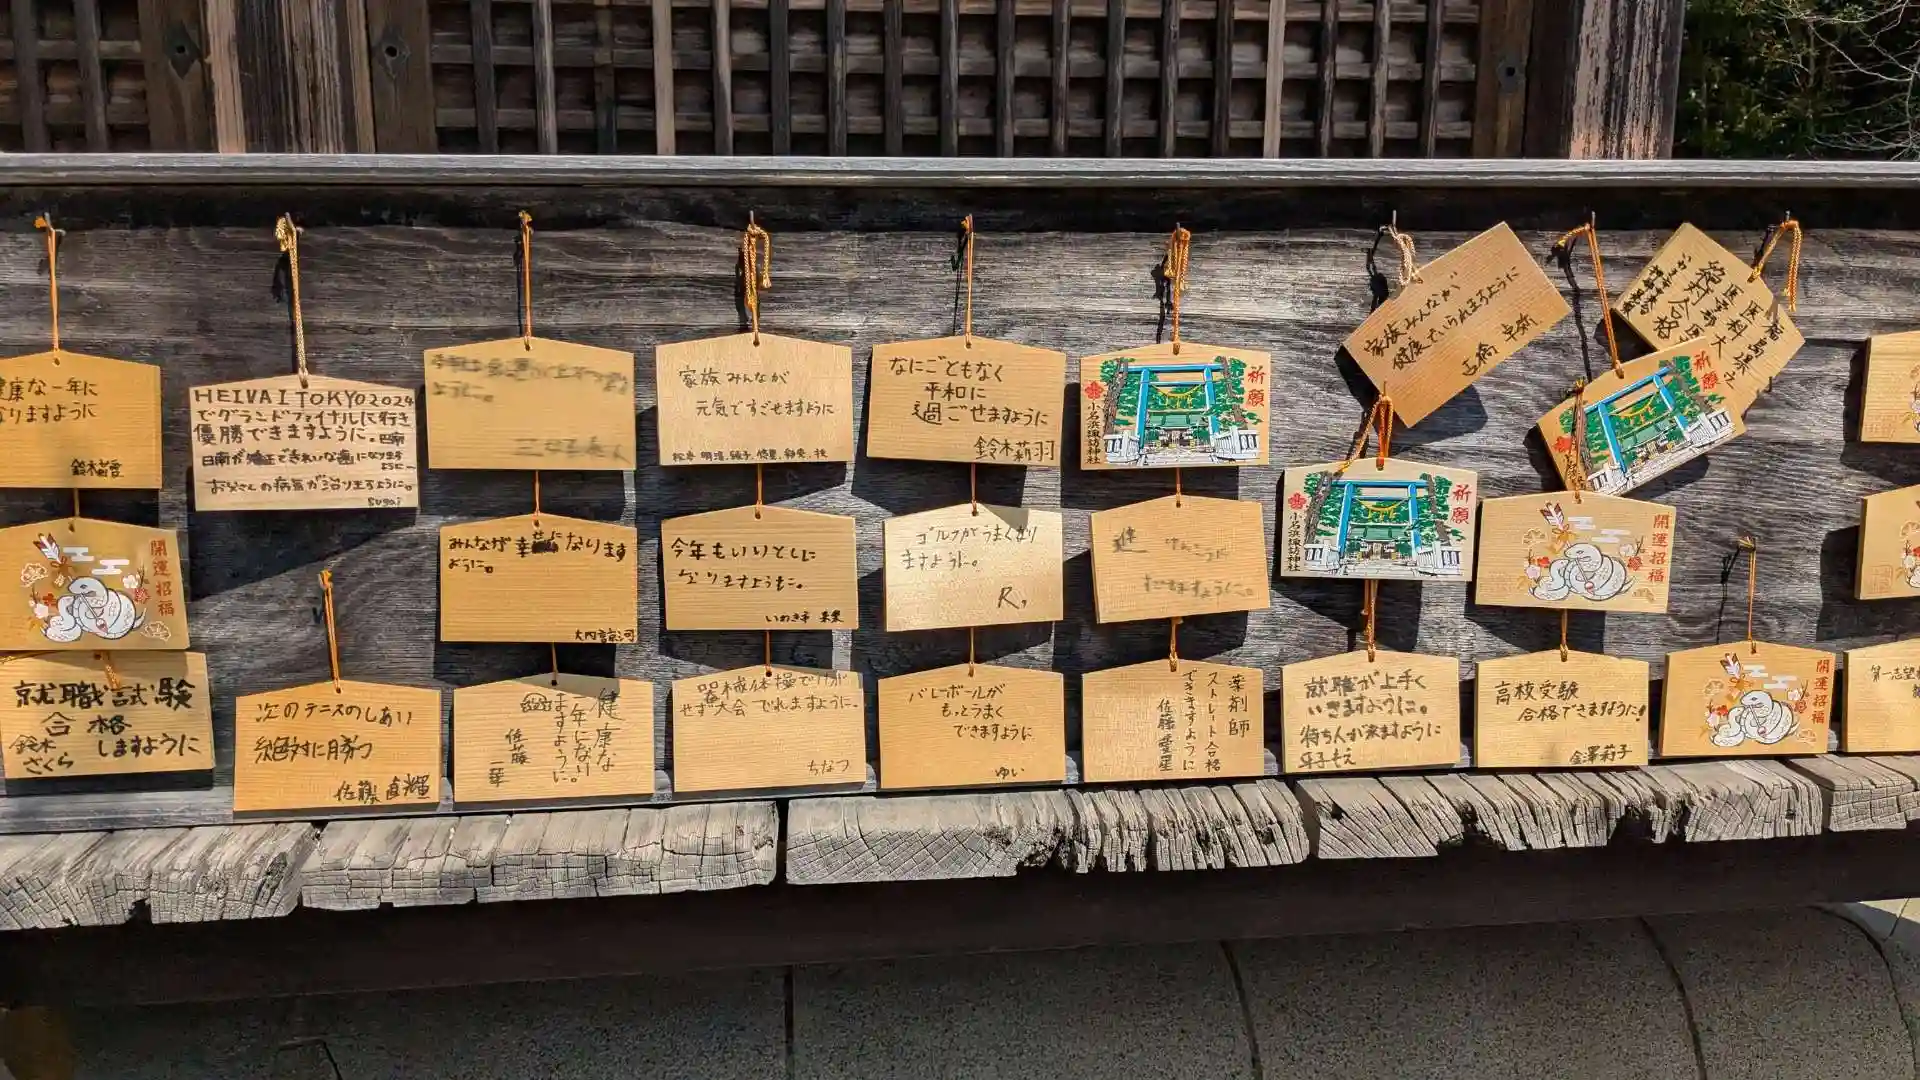 健康な一年に
なりますように
鈴木
開運招福
就職試験
合格
しますように
鈴木
さくら
HEIVA I TOKYO 2024
でグランドファイナルに行き
優勝できますように。
お父さんの病気が治りますように。
sugai
次のテニスのしあい
絶対に勝つ
佐藤 直輝
ように。
みんなが幸せになります
ように。
健康な
年になり
ますように。
佐藤
一華
家族みんなが
元気ですごせますように
今年もいいとしに
なりますように。
いわき市
器械体操でけが
せず大会 でれますように。
ちなつ
なにごともなく
平和に
過ごせますように
鈴木莉羽
ゴルフがうまくなり
ますように。
R,
バレーボールが
もっとうまく
できますように
ゆい
祈願
小名浜諏訪神社
けんこうに
ますように。
薬剤師
ストレート合格
できますように
佐藤愛星
家族みんなが
健康でいられますように
高橋
祈願
小名浜諏訪神社
就職が上手く
いきますように。
待ち人が来ますように
福島県立
医科大
医学部
絶対合格
祈願
開運招福
高校受験
合格できますように!
金澤莉子
開運招福
第一志望